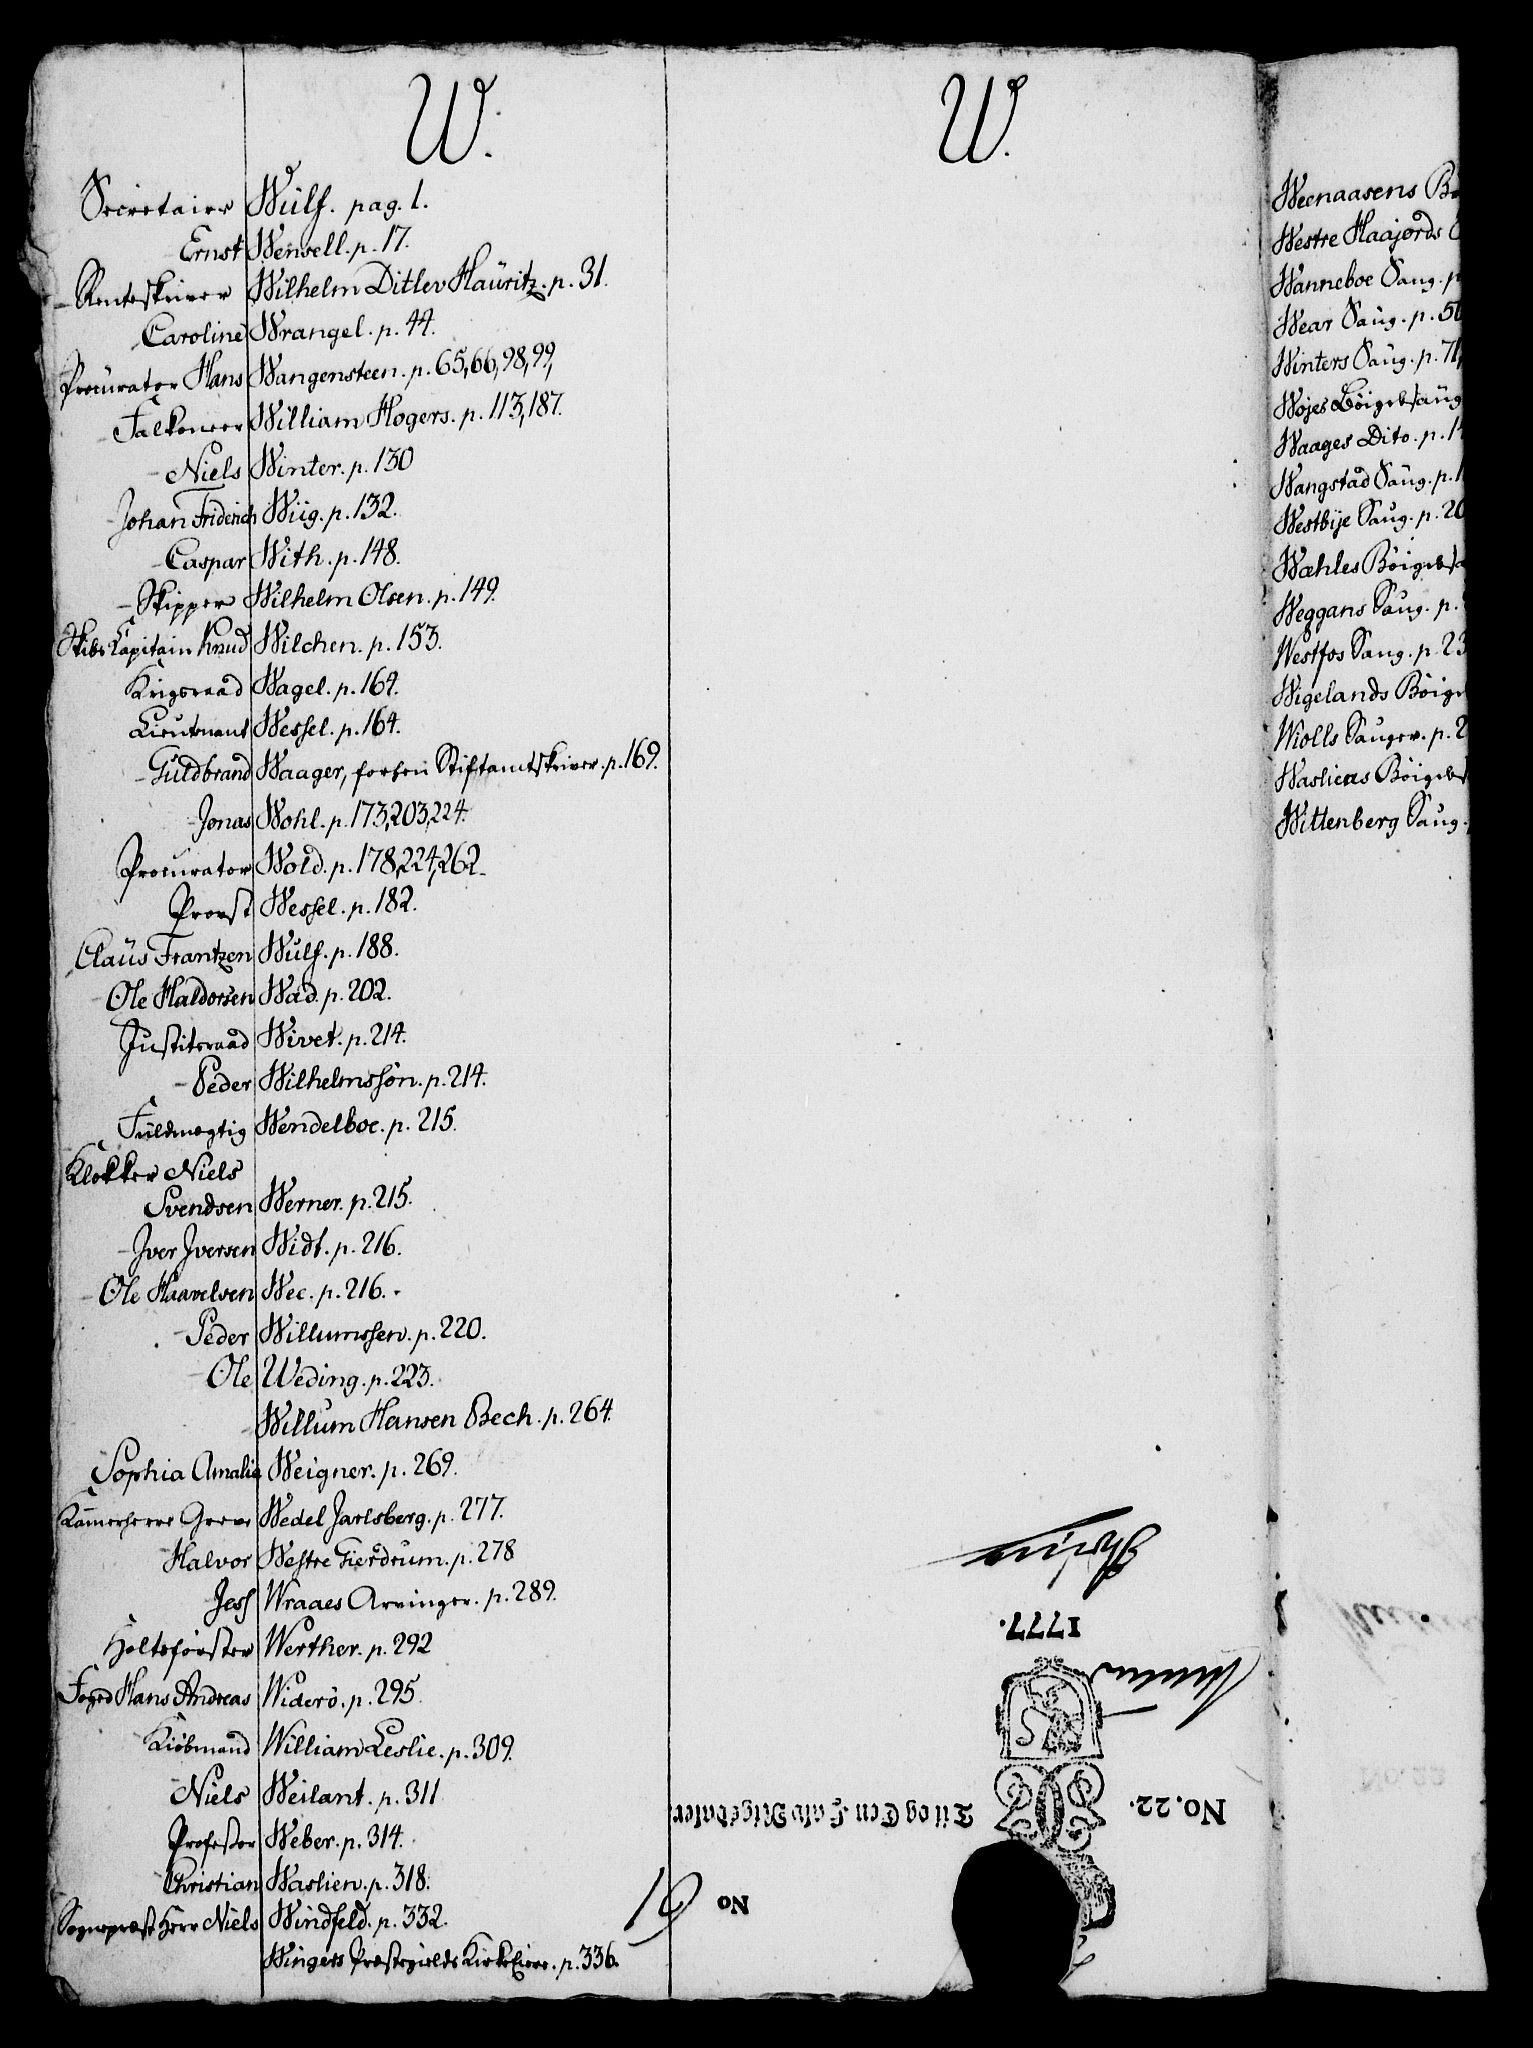 W.
Secretaire Wülf. pag. 1.
Ernst Wensell. p. 17.
Renteskriver Wilhelm Ditlev Haüritz. p. 31.
Caroline Wrangel. p. 44.
Procurator Hans Wangensteen. p. 65, 66, 98, 99,
Falkoneer William Hogers. p. 113, 187.
Niels Winter. p. 130
Johan Friderich Wiig. p. 132.
Caspar With. p. 148.
Skipper Wilhelm Olsen. p. 149.
Skibs Capitain Knud Wilchen. p. 153.
Krigsraad Wagel. p. 164.
Lieutenant Wessel. p. 164.
Güldbrand Waager, forhen Stiftamtskriver. p. 169.
Jonas Wohl. p. 173, 203, 224.
Procurator Wold. p. 178, 224, 262.
Provst Wessel. p. 182.
Claüs Frantzen Wülf. p. 188.
Ole Haldorsen Wad. p. 202.
Justitsraad Wivet. p. 214.
Peder Wilhelmssön. p. 214.
Füldmegtig Wendelboe. p. 215.
Klokker Niels
Svendsen Werner. p. 215.
Iver Iversen Widt. p. 216.
Ole Haavelsen Wee. p. 216.
Peder Willumssen. p. 220.
Ole Weding. p. 223.
Willum Hansen Bech. p. 264.
Sophia Amalia Weigner. p. 269.
Kam̄erherre Greve Wedel Jarlsberg. p. 277.
Halvor Westre Gierdrum. p. 278
Jess Wraaes Arvinger. p. 289.
Holtsförster Werther. p. 292
Foged Hans Andreas Widerö. p. 295.
Kiöbmand William Leslie. p. 309.
Niels Weilant. p. 311
Professor Weber. p. 314.
Christian Waslien. p. 318.
Sogneprest Herr Niels Windfeld. p. 332.
Wingers Præstegields Kirke Eiere. p. 336.
W.
1777.
No. 22.
Tii og Een Halv Rigsdaler
No 61
Weenaasens
Westre Haajords
Wanneboe Saug. p
Wear Saug. p. 56
Winters Saug. p. 71,
Wojes Böigdesaug
Waages Dito. p. 14
Wangstad Saug. p. 1
Westbije Saug. p. 20
Wæhles Böigdesa
Weggans Saug. p.
Westfos Saug. p. 23
Wigelands Böigd
Wiolls Sauger. p. 2
Waslieas Böigdes
Wittenberg Saug.